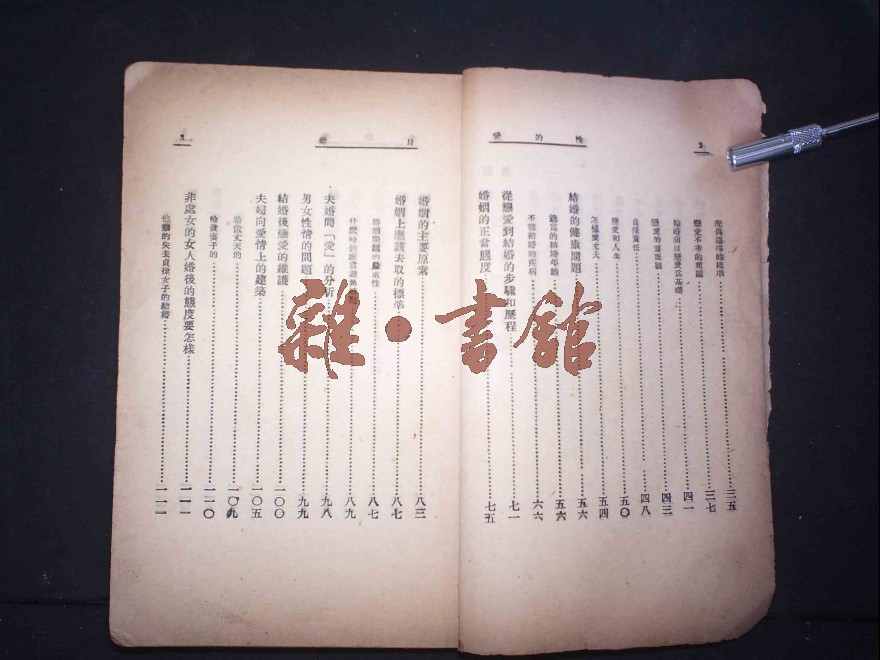 性的愛
2
配偶選擇的標準……三五
戀愛不幸的問題……三七
結婚須以戀愛為基礎……四一
戀愛的……四三
貞操責任……四八
戀愛和人生……五〇
怎樣愛丈夫……五四
結婚的健康問題……五六
適當的結婚年齡……五六
不能結婚的疾病……六六
從戀愛到結婚的步驟和歷程……七一
婚姻的正當態度……七五
目
婚姻的主要原素……八三
婚姻上應該去取的標準……八七
婚姻問題的嚴重性……八七
什麼時候應當避免……八九
夫婚間「愛」的分析……九八
男女性情的問題……九九
結婚後戀愛的維護……一〇〇
夫婦向愛情上的建築……一〇五
給做丈夫的……一〇九
給做妻子的……一一〇
非處女的女人婚後的態度要怎樣……一一一
的失去貞操女子的結婚……一一一
雜·書館